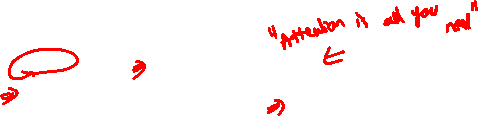 "Attention is all you need"